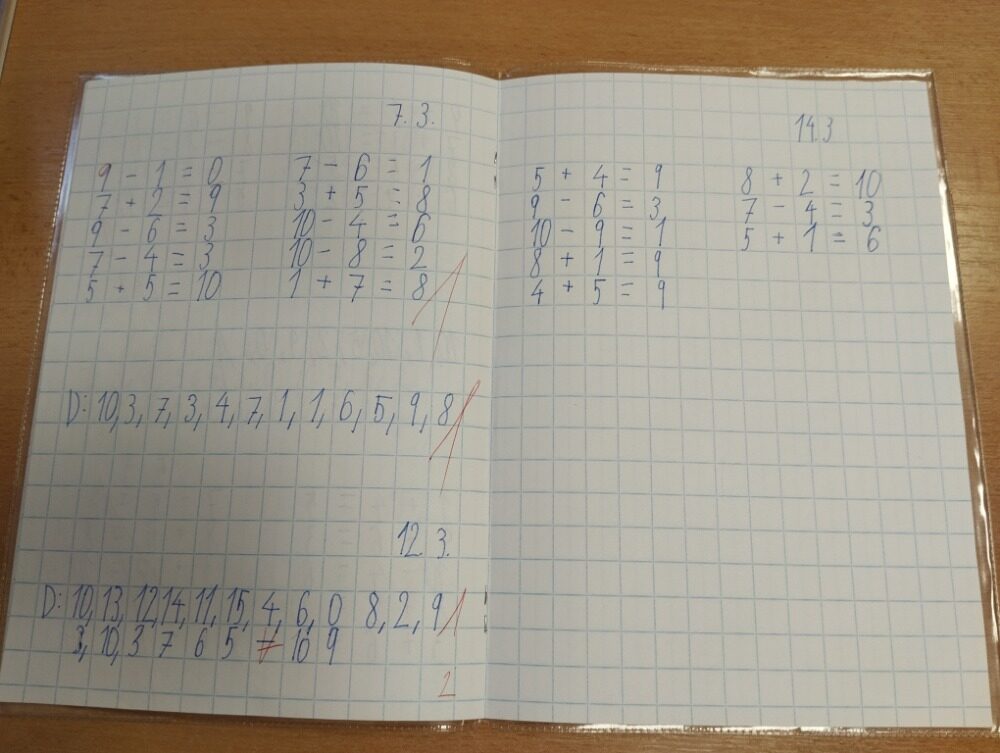 7. 3.
9 - 1 = 0 7 - 6 = 1
7 + 2 = 9 3 + 5 = 8
9 - 6 = 3 10 - 4 = 6
7 - 4 = 3 10 - 8 = 2
5 + 5 = 10 1 + 7 = 8
1
D: 10, 3, 7, 3, 4, 7, 1, 1, 6, 5, 9, 8
1
12 3.
D: 10, 13, 12, 14, 11, 15, 4, 6, 0 8, 2, 9
1
3, 10, 3 7 6 5 7 10 9
2
14.3
5 + 4 = 9 8 + 2 = 10
9 - 6 = 3 7 - 4 = 3
10 - 9 = 1 5 + 1 = 6
8 + 1 = 9
4 + 5 = 9